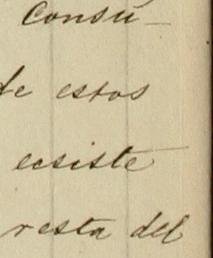 consu-
de estos
ecsiste
resta del